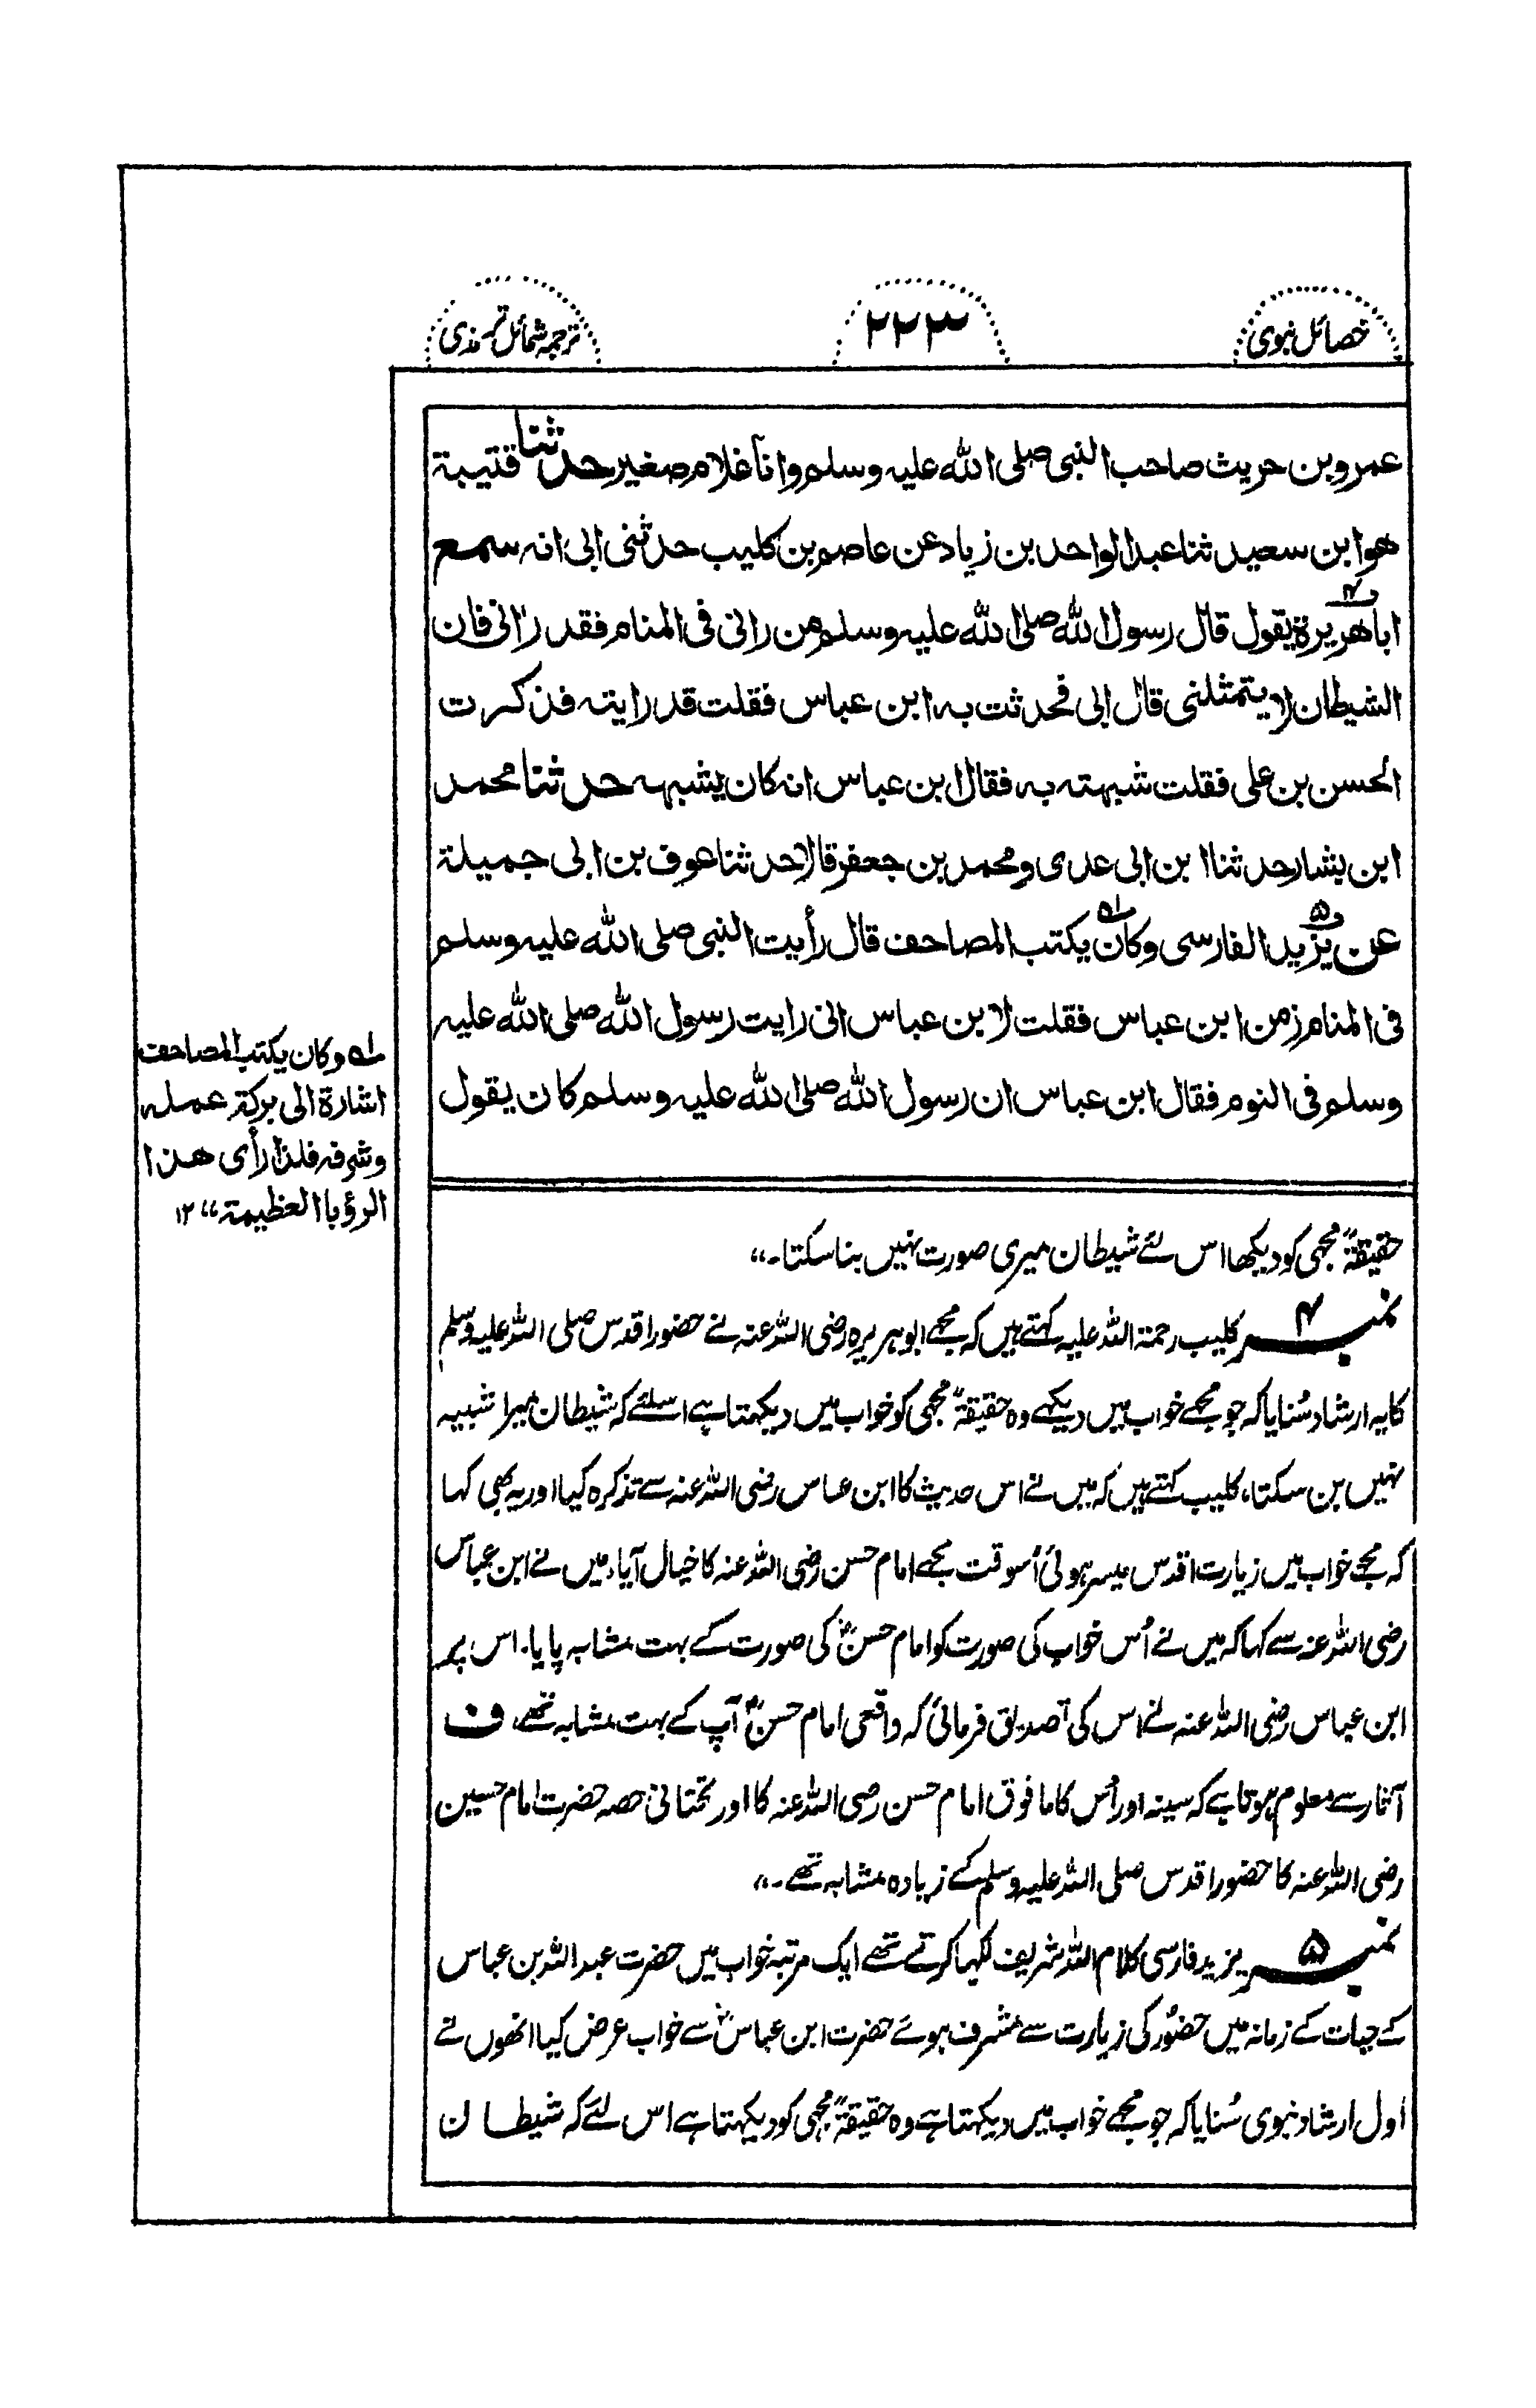 خصائل نبوی
٢٢٣
ترجمہ شمائل ترمذی
عمرو بن حریث صاحب النبی صلی اللہ علیہ وسلم وانا غلام صغیر حدثنا قتیبة
ھو ابن سعید ثنا عبد الواحد بن زیاد عن عاصم بن کلیب حدثنی ابی انہ سمع
ابا ھریرة یقول قال رسول اللہ صلی اللہ علیہ وسلم من رانی فی المنام فقد رانی فان
الشیطان لا یتمثلنی قال ابی فحدثت بہ ابن عباس فقلت قد رایتہ فذکرت
الحسن بن علی فقلت شبھتہ بہ فقال ابن عباس انہ کان یشبھہ حدثنا محمد
ابن بشار حدثنا ابن ابی عدی و محمد بن جعفر قالا حدثنا عوف بن ابی جمیلة
عن یزید الفارسی وکان یکتب المصاحف قال رأیت النبی صلی اللہ علیہ وسلم
فی المنام زمن ابن عباس فقلت لابن عباس انی رایت رسول اللہ صلی اللہ علیہ
وسلم فی النوم فقال ابن عباس ان رسول اللہ صلی اللہ علیہ وسلم کان یقول
لہ وکان یکتب المصاحف
اشارة الی برکة عملہ
وشرفہ فلذا رأی ھذا
الرؤیا العظیمة ،، ١٢
حقیقۃً مجھی کو دیکھا اس لئے شیطان میری صورت نہیں بنا سکتا۔،،
نمبر ۴ کلیب رحمۃ اللہ علیہ کہتے ہیں کہ مجھے ابو ہریرہ رضی اللہ عنہ نے حضور اقدس صلی اللہ علیہ وسلم
کا یہ ارشاد سُنایا کہ جو مجھے خواب میں دیکھے وہ حقیقۃً مجھی کو خواب میں دیکھتا ہے اسلئے کہ شیطان میرا شبیہ
نہیں بن سکتا، کلیب کہتے ہیں کہ میں نے اس حدیث کا ابن عباس رضی اللہ عنہ سے تذکرہ کیا اور یہ بھی کہا
کہ مجھے خواب میں زیارت اقدس میسر ہوئی اُسوقت مجھے امام حسن رضی اللہ عنہ کا خیال آیا، میں نے ابن عباس
رضی اللہ عنہ سے کہا کہ میں نے اُس خواب کی صورت کو امام حسنؓ کی صورت کے بہت مشابہ پایا۔ اس پر
ابن عباس رضی اللہ عنہ نے اس کی تصدیق فرمائی کہ واقعی امام حسنؓ آپ کے بہت مشابہ تھے، ف
آثار سے معلوم ہوتا ہے کہ سینہ اور اُس کا مافوق امام حسن رضی اللہ عنہ کا اور تحتانی حصہ حضرت امام حسین
رضی اللہ عنہ کا حضور اقدس صلی اللہ علیہ وسلم کے زیادہ مشابہ تھے۔،،
نمبر ۵ یزید فارسی کلام اللہ شریف لکھا کرتے تھے ایک مرتبہ خواب میں حضرت عبد اللہ بن عباس
کے حیات کے زمانہ میں حضورؐ کی زیارت سے مشرف ہوئے حضرت ابن عباسؓ سے خواب عرض کیا انھوں نے
اول ارشاد نبوی سُنایا کہ جو مجھے خواب میں دیکھتا ہے وہ حقیقۃً مجھی کو دیکھتا ہے اس لئے کہ شیطان